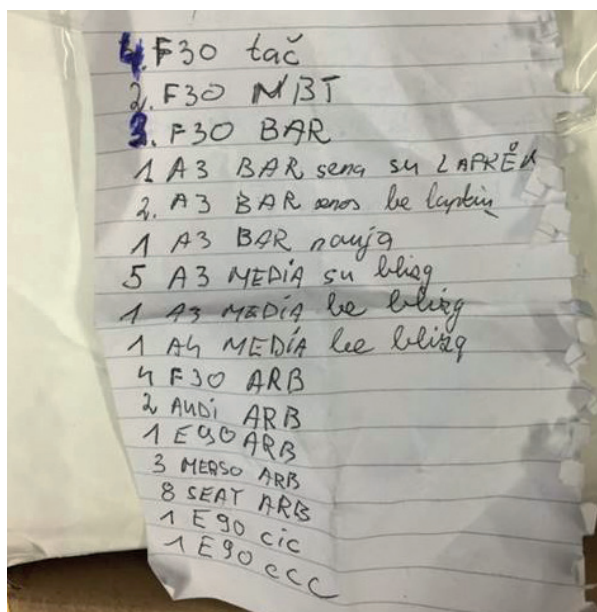 4. F30 tač
2. F30 NBT
3. F30 BAR
1 A3 BAR sena su LAPKĖM
2. A3 BAR senos be lapkių
1 A3 BAR nauja
5 A3 MEDIA su blizg
1 A3 MEDIA be blizg
1 A4 MEDIA be blizg
4 F30 ARB
2 AUDi ARB
1 E90 ARB
3 MERSO ARB
8 SEAT ARB
1 E90 cic
1 E90 ccc